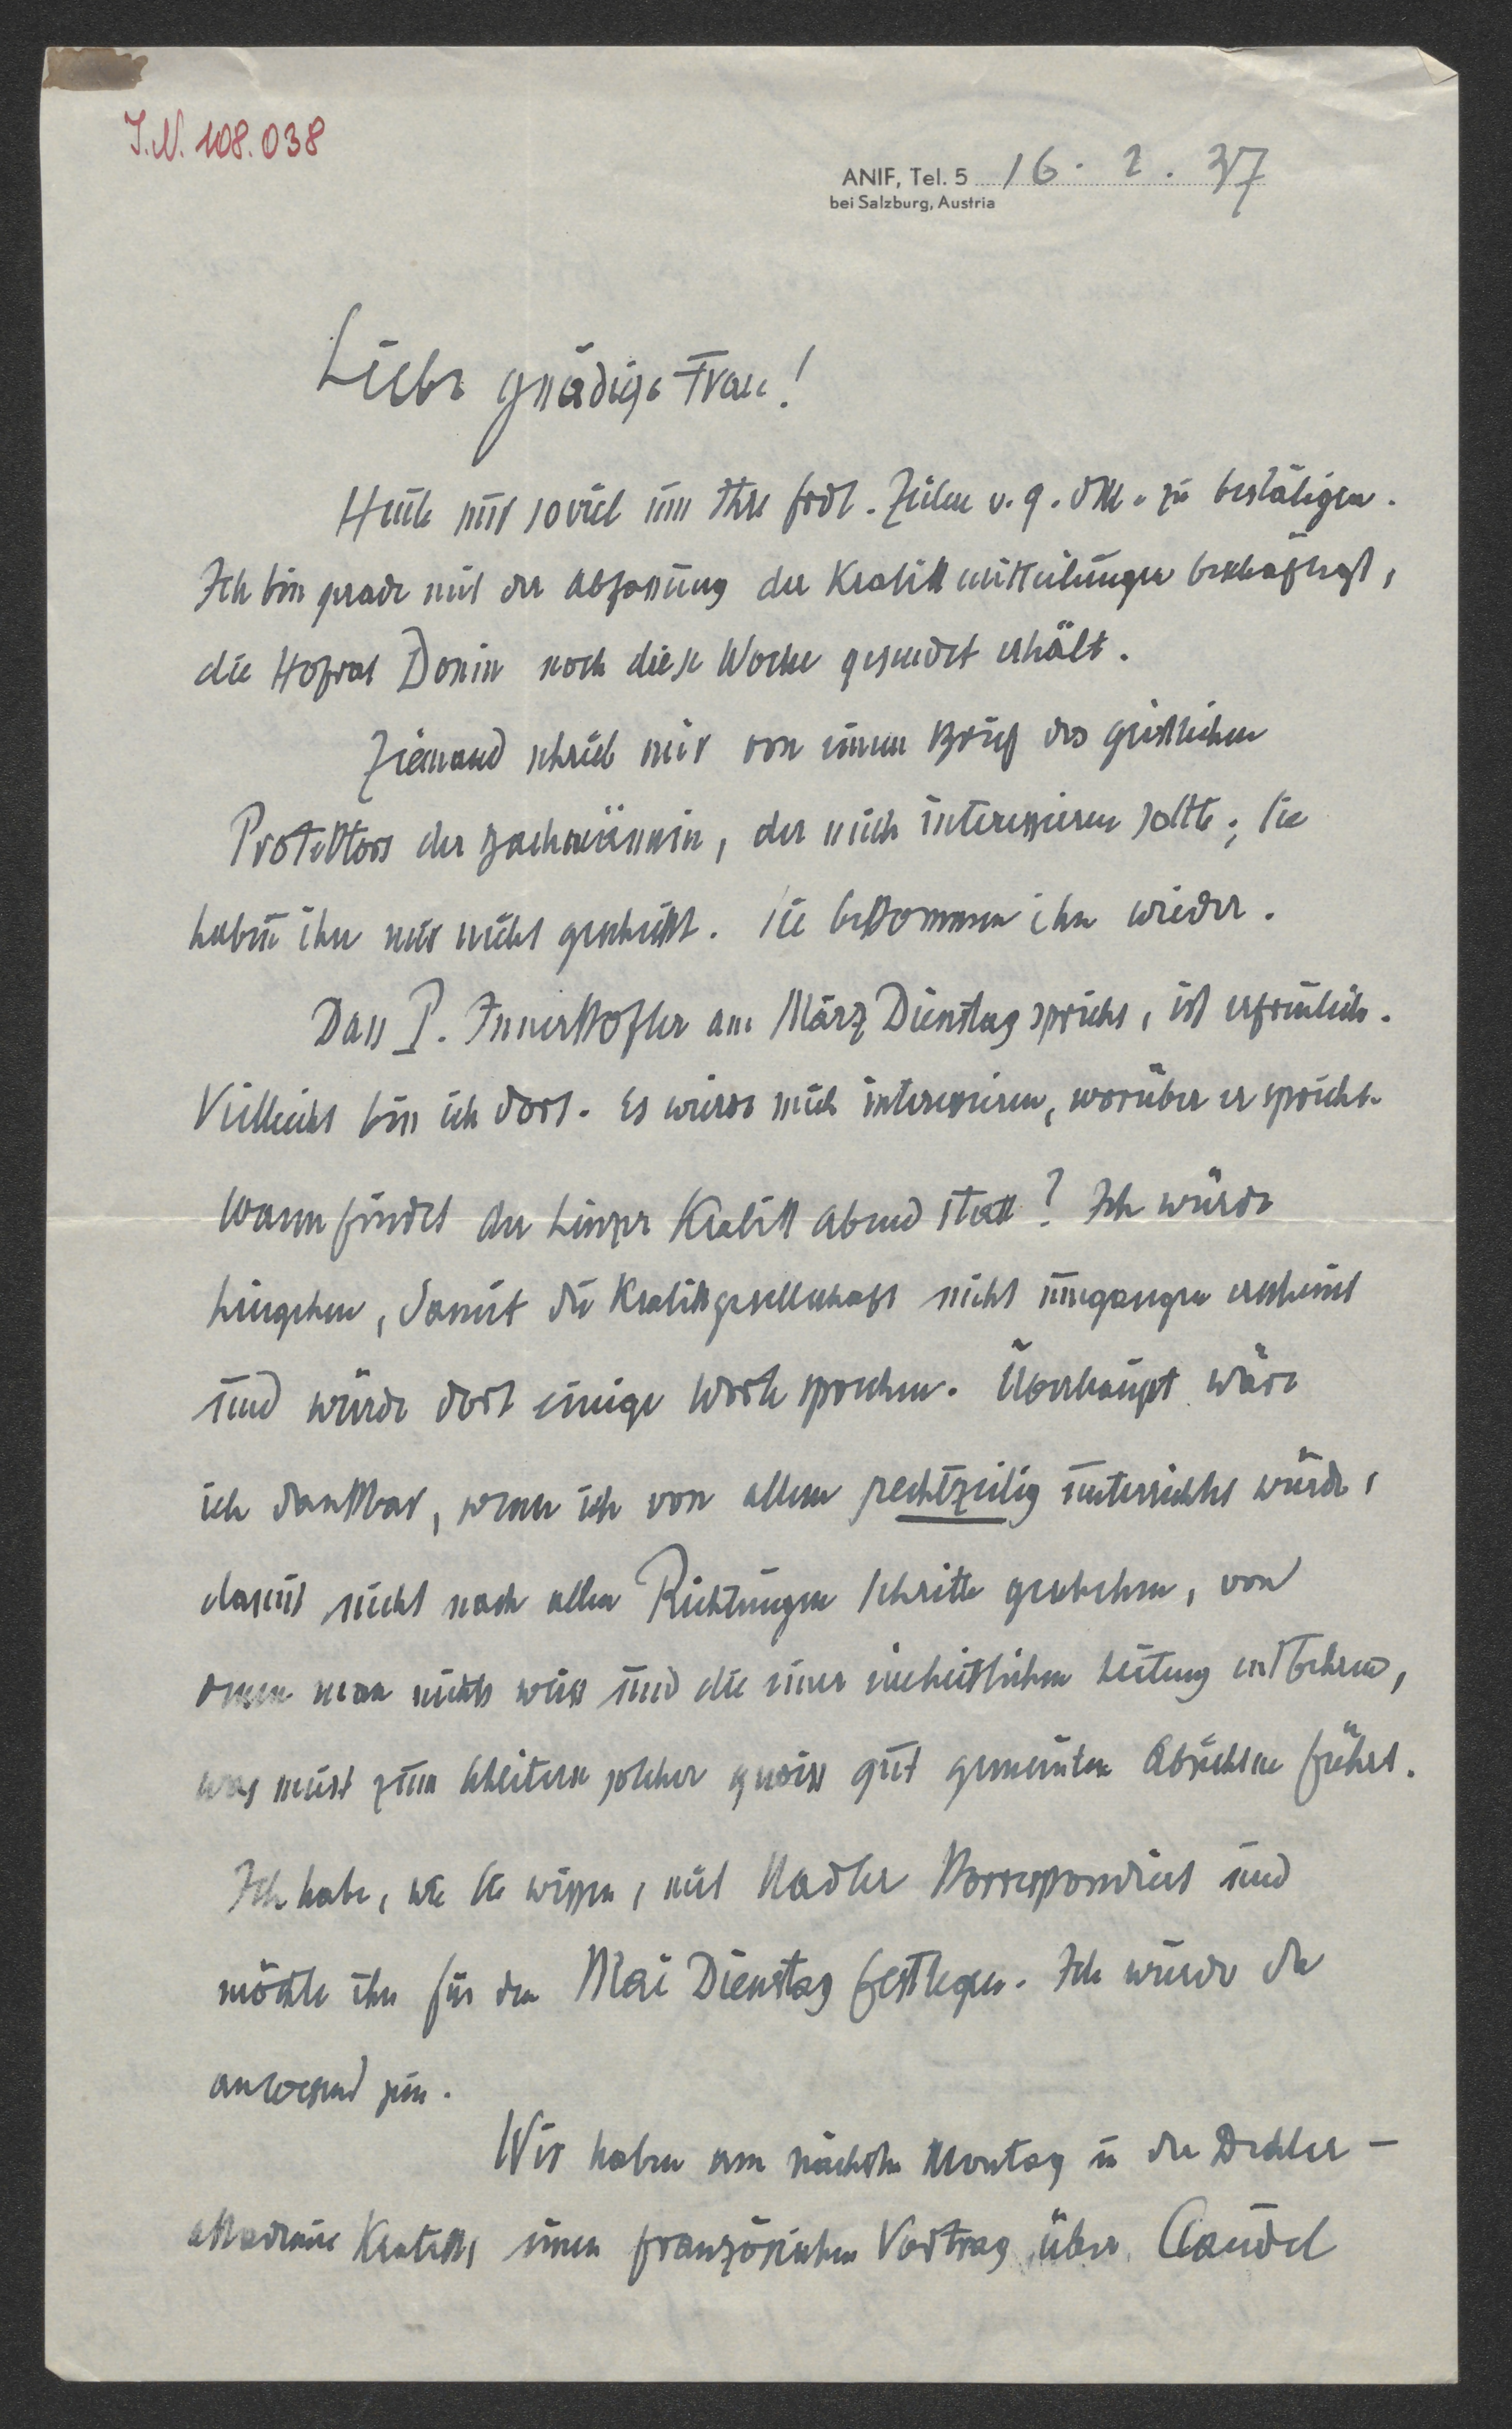 I.N. 108.038
ANIF, Tel. 5 16. 2. 37
bei Salzburg, Austria
Liebe gnädige Frau!
Heute nur soviel um Ihre frdl. Zeilen v. 9. d M. zu bestätigen.
Ich bin gerade mit der Abfassung der Kralikmitteilungen beschäftigt,
die Hofrat Donin noch diese Woche gesendet erhält.
Ziemand schrieb mir von einem Brief des geistlichen
Protektors der Bachmännin, der mich interessieren sollte; Sie
haben ihn mir nicht geschickt. Sie bekommen ihn wieder.
Dass P. Innerkofler am März Dienstag spricht, ist erfreulich.
Vielleicht bin ich dort. Es würde mich interessieren, worüber er spricht.
Wann findet der Linzer Kralik Abend statt? Ich würde
hingehen, damit die Kralikgesellschaft nicht umgangen erscheint
und würde dort einige Worte sprechen. Überhaupt wäre
ich dankbar, wenn ich von allem rechtzeitig unterrichtet würde,
damit nicht nach allen Richtungen Schritte geschehen, von
denen man nichts weiss und die einer einheitlichen Leitung entbehren,
was meist zum Scheitern solcher gewiss gut gemeinten Absichten führt.
Ich habe, wie Sie wissen, mit Nadler korrespondiert und
möchte ihn für den Mai Dienstag festlegen. Ich würde da
anwesend sein.
Wir haben am nächsten Montag in der
einen französischen Vortrag über Claudel